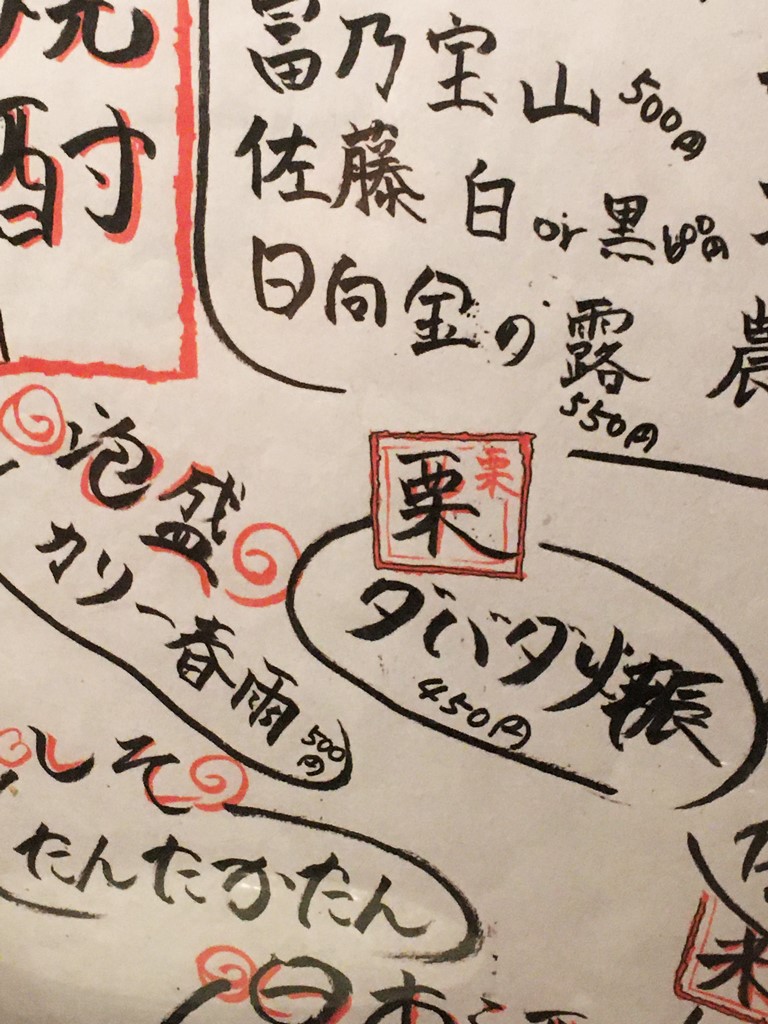 焼酎
富乃宝山 500円
佐藤 白 or 黒
日向金の露 550円
泡盛
カリー春雨 500円
栗 栗
ダバダ火振
450円
しそ
たんたかたん
農
米